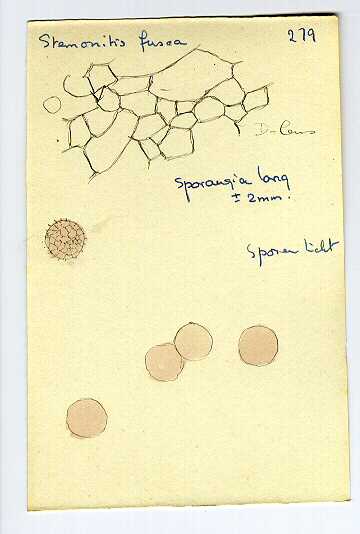 Stemonitis fusca 279
Sporangia lang
± 2mm.
Sporen licht